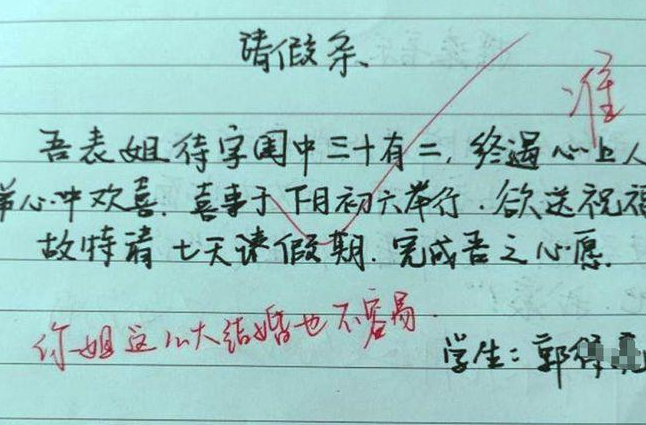 请假条
准
吾表姐待字闺中三十有二,终遇心上人
心中欢喜.喜事于下月初六举行.欲送祝福
故特请七天请假期.完成吾之心愿.
你姐这么大结婚也不容易.
学生:郭